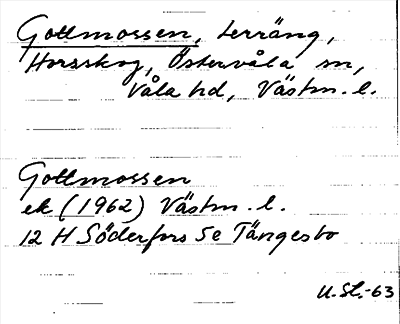 Gottmossen, terräng,
Horsskog, Östervåla sn,
Våla hd, Västm. l.
Gottmossen
ek (1962) Västm. l.
12 H Söderfors Se Tängesbo
U. St. -63